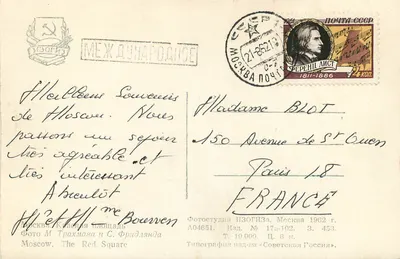 ИЗОГИЗ
МЕЖДУНАРОДНОЕ
ПОЧТА СССР
ФЕРЕНЦ ЛИСТ
1811-1886
МОСКВА
Meilleurs Souvenirs
de Moscou. Nous
passons un séjour
très agréable et
très intéressant
A bientôt
Mr et Mme Bourven
Madame BLOT
150 Avenue de St Ouen
Paris 18
FRANCE
Москва. Красная площадь
Фото М. Трахмана и С. Фридлянда
Moscow. The Red Square
Фотостудия ИЗОГИЗа, Москва 1962 г.
Типография изд-ва «Советская Россия».